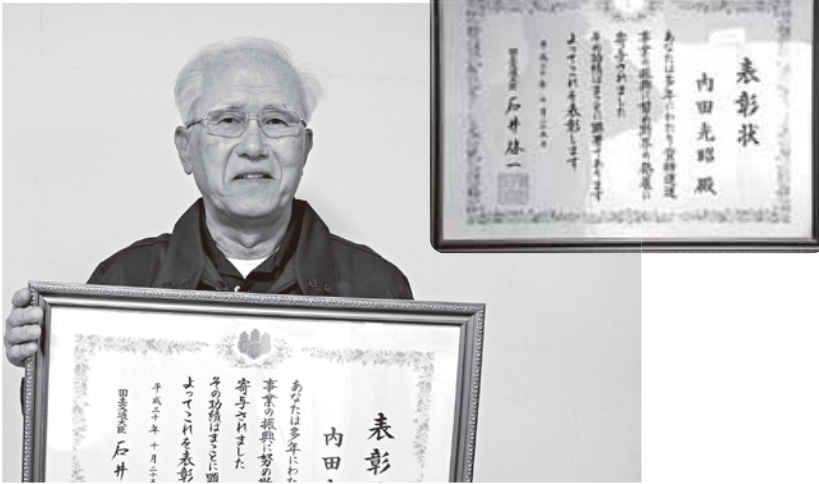 表彰状
内田光昭殿
あなたは多年にわたり貨物運送
事業の振興に努め斯界の発展に
寄与されました
その功績はまことに顕著であります
よってこれを表彰します
平成三十年 十月二十
国土交通大臣 石井啓一
表彰
内田
あなたは多年にわた
事業の振興に努め斯
寄与されました
その功績はまことに顕
よってこれを表彰
平成三十年 十月二十
国土交通大臣 石井